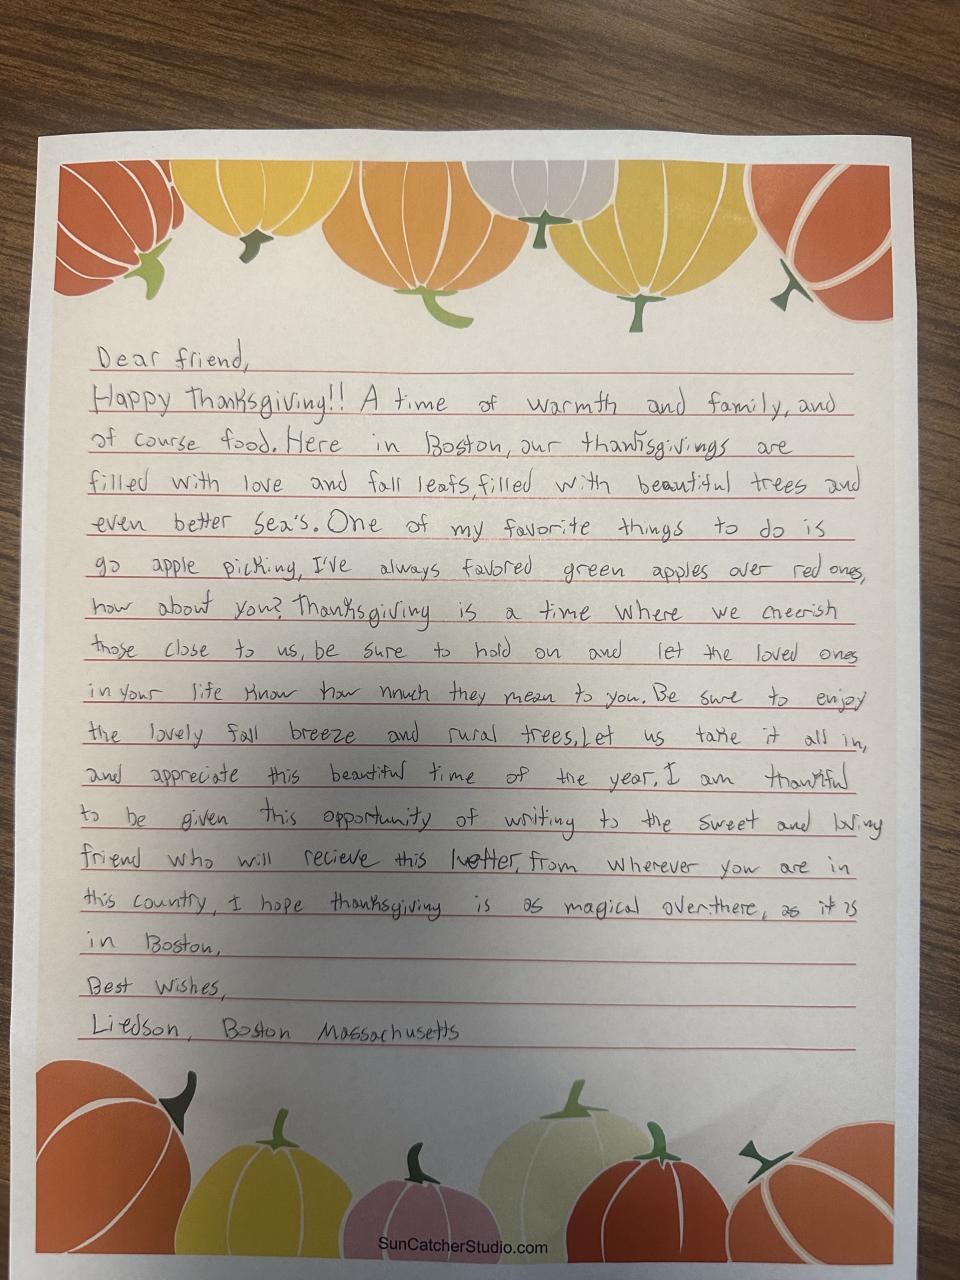 Dear friend,
Happy Thanksgiving!! A time of warmth and family, and
of course food. Here in Boston, our thanksgivings are
filled with love and fall leafs, filled with beautiful trees and
even better sea's. One of my favorite things to do is
go apple picking, I've always favored green apples over red ones,
how about you? Thanksgiving is a time where we cheerish
those close to us, be sure to hold on and let the loved ones
in your life know how much they mean to you. Be sure to enjoy
the lovely fall breeze and rural trees. Let us take it all in,
and appreciate this beautiful time of the year. I am thankful
to be given this opportunity of writing to the sweet and loving
friend who will recieve this letter, from wherever you are in
this country, I hope thanksgiving is as magical over there, as it is
in Boston,
Best Wishes,
Liedson, Boston Massachusetts
SunCatcherStudio.com